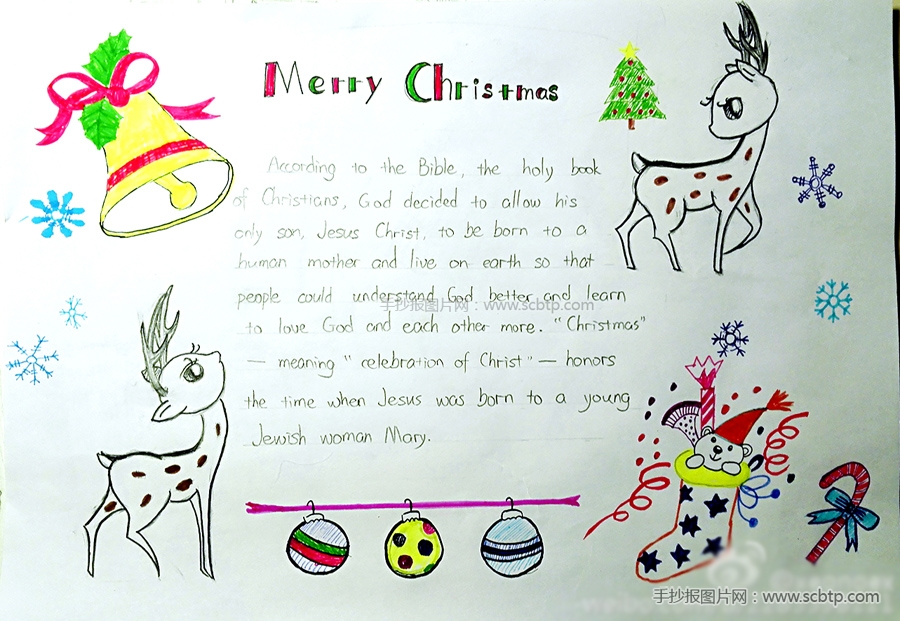 Merry Christmas
According to the Bible, the holy book
of Christians, God decided to allow his
only son, Jesus Christ, to be born to a
human mother and live on earth so that
people could understand God better and learn
手抄报图片网：www.scbtp.com
to love God and each other more. "Christmas"
— meaning "celebration of Christ" — honors
the time when Jesus was born to a young
Jewish woman Mary.
手抄报图片网：www.scbtp.com